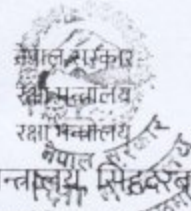 नेपाल सरकार
रक्षा मन्त्रालय
रक्षा मन्त्रालय
नेपाल सरकार
न्त्रालय, सिंहदरब